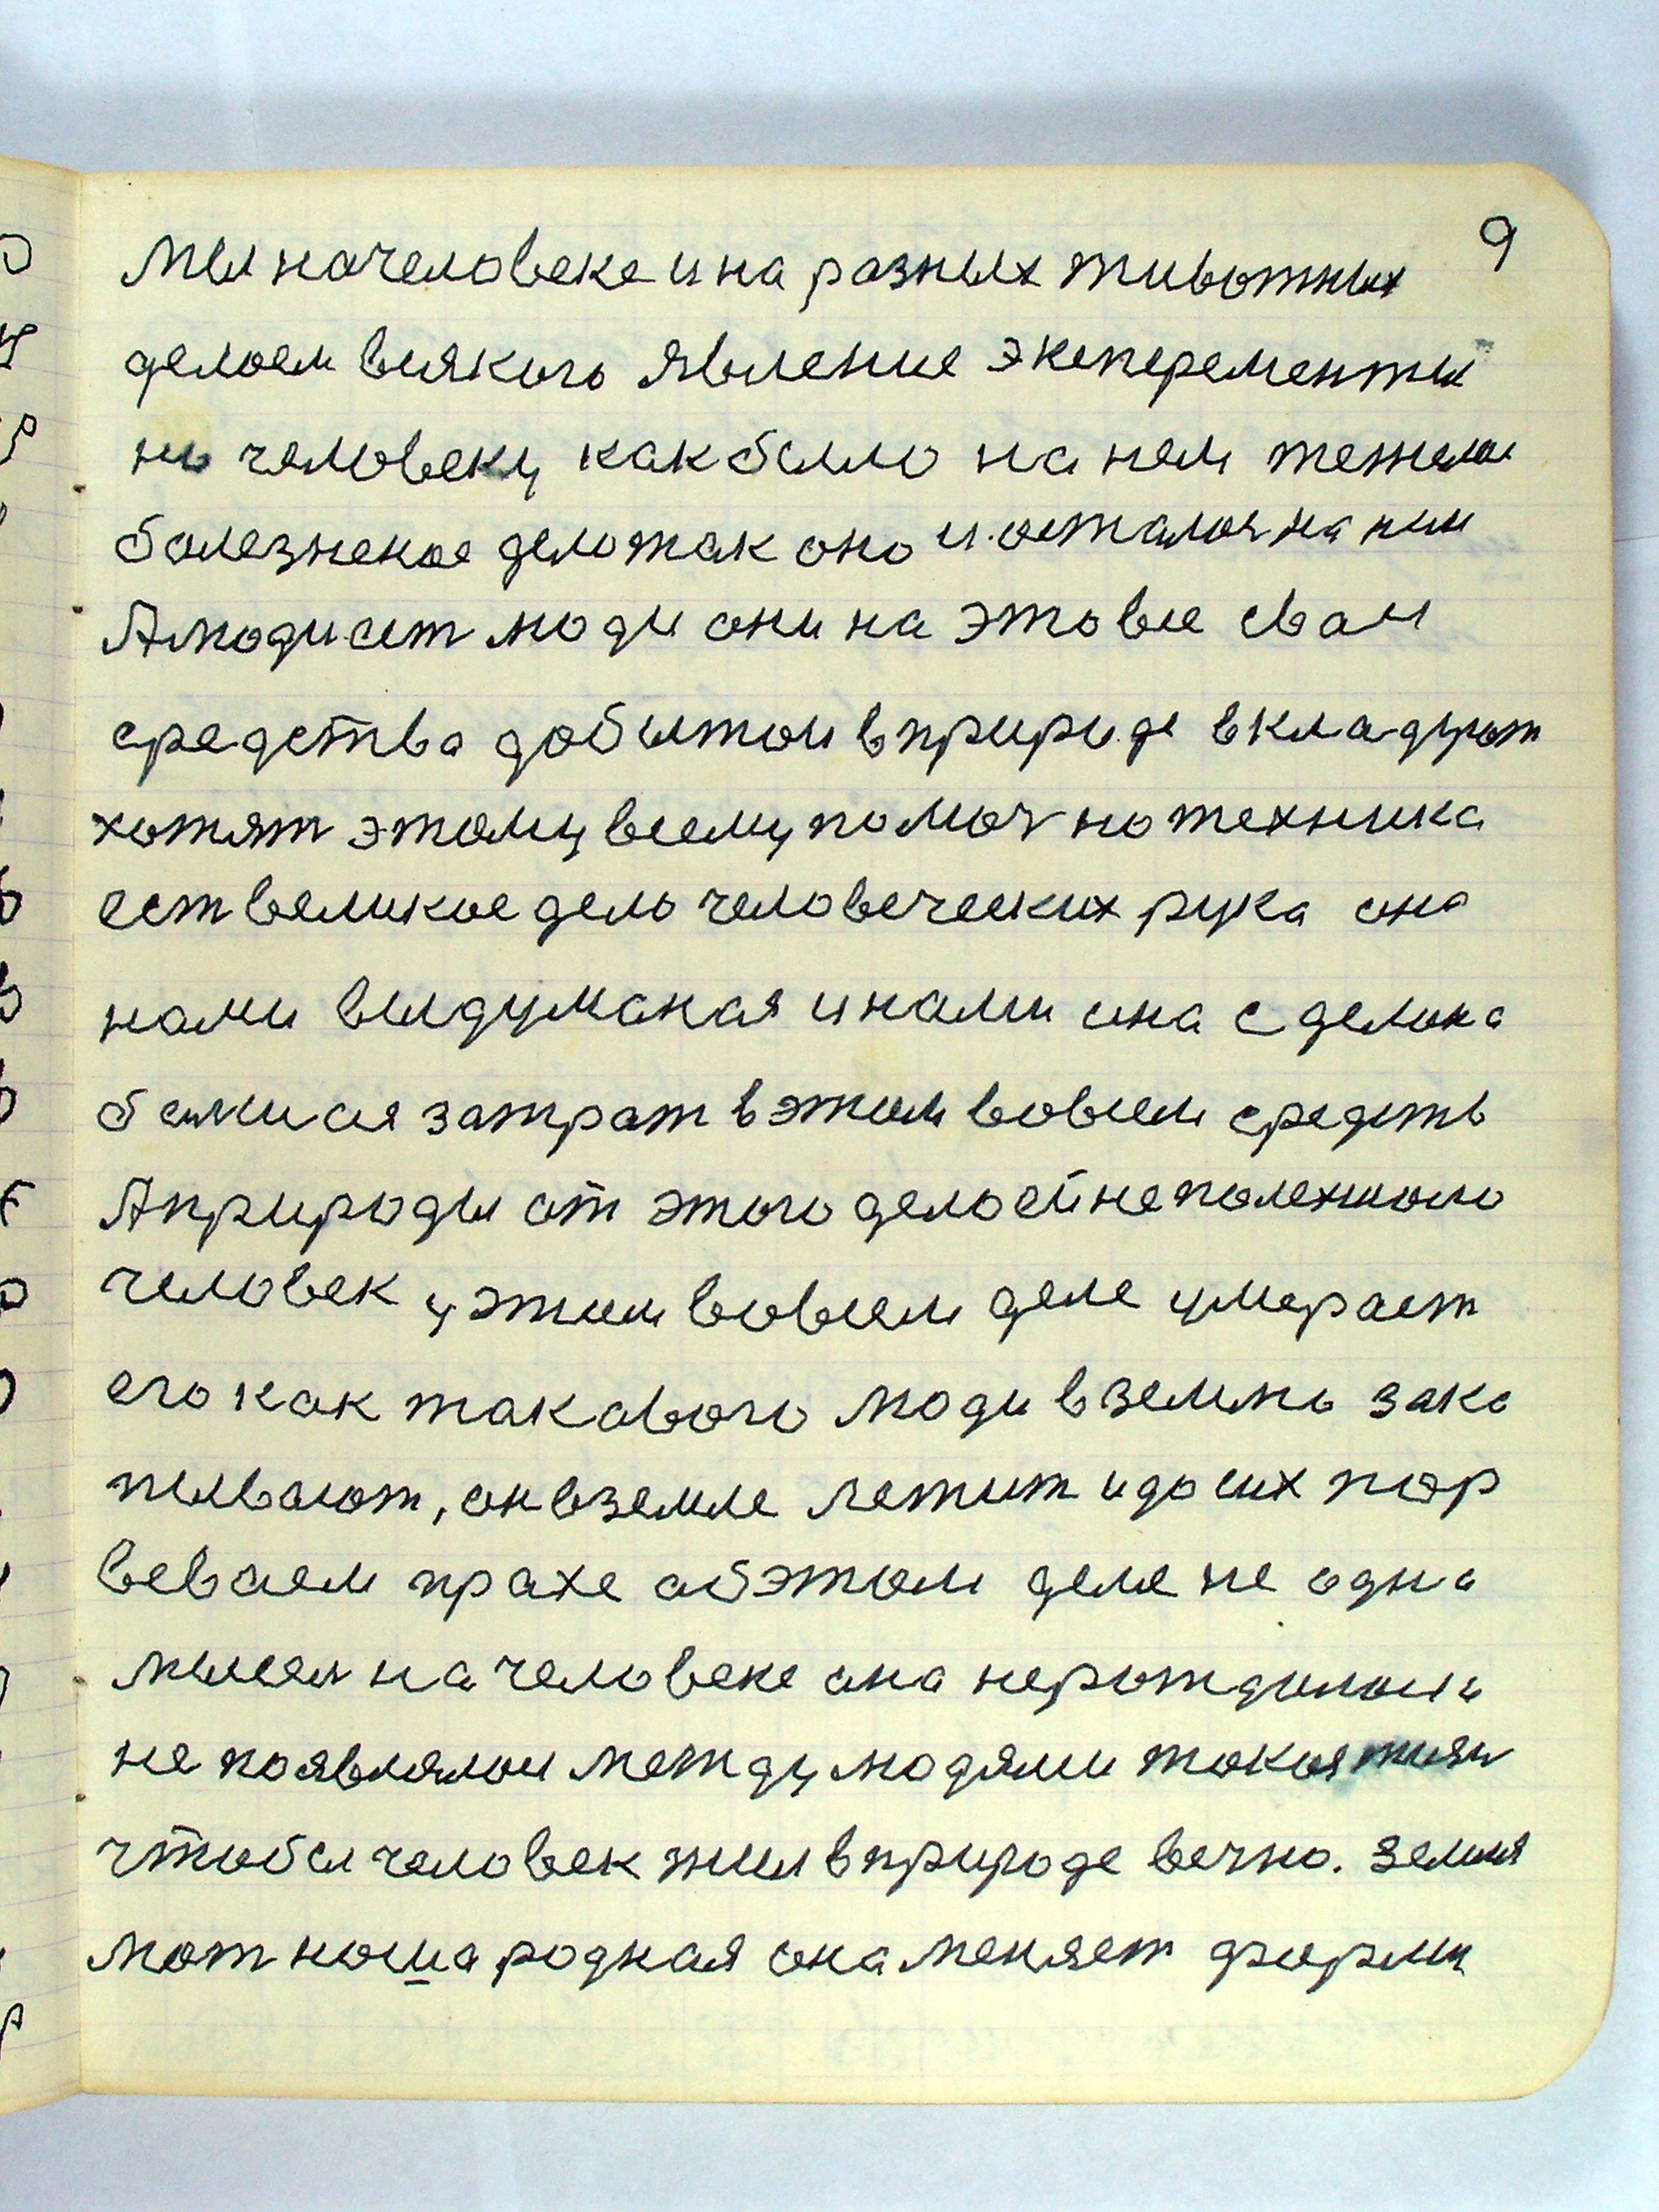 9
Мы на человеке и на разных животных
делаем всякого явление эксперементы
но человеку как было на нем тежелое
болезненое дело так оно и осталось на нем
А люди ест люди они на это все сваи
средства добытои в природе вкладуют
хотят этому всему помоч но техника
ест великое дело человеческих рука она
нами выдуманая и нами она сделана
балшися затрат в этом вовсем средств
А природы от этого дело ей не полехшало
человек у этом вовсем деле умерает
его как такового люди в землю зако
пывают, он в земле лежит и до сих пор
в сваем прахе об этом деле не одна
мысел на человеке она не рождалась и
не появлялои между людями такоя жизн
чтобы человек жил в природе вечно. Земля
мат наша родная она меняет форму